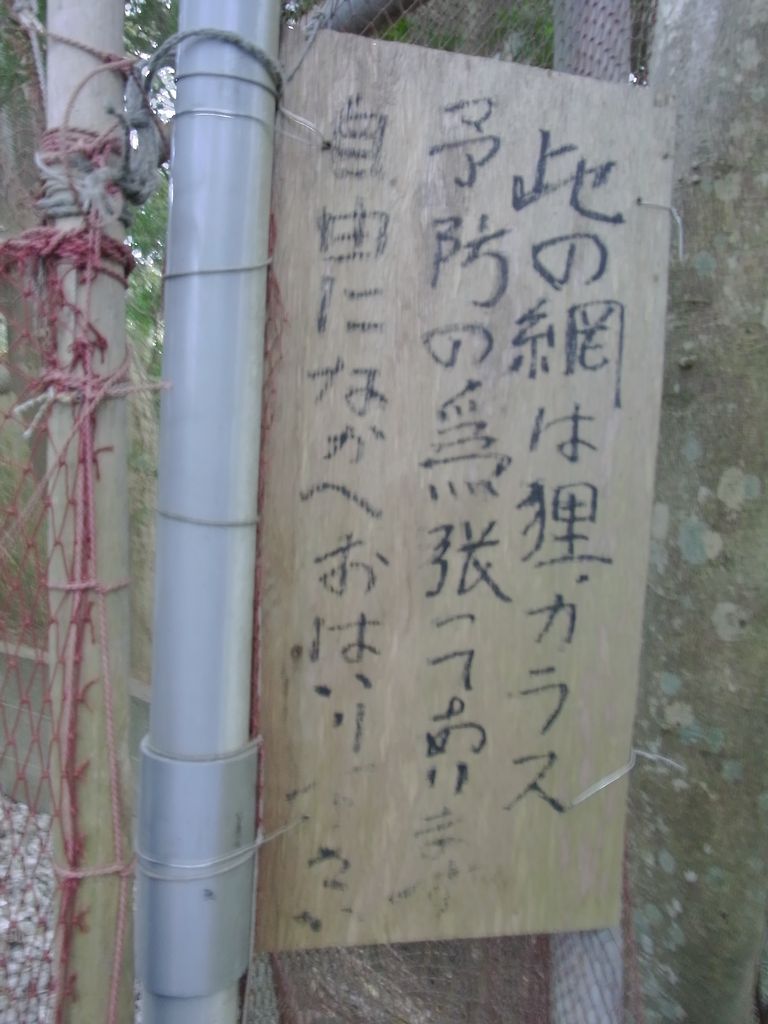 此の網は狸・カラス
予防の為張ってあります
自由になかへおはいり下さい